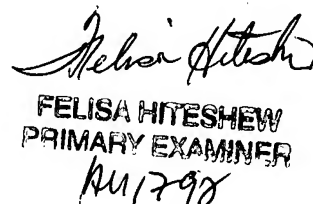 Felisa Hiteshew
FELISA HITESHEW
PRIMARY EXAMINER
AU1792